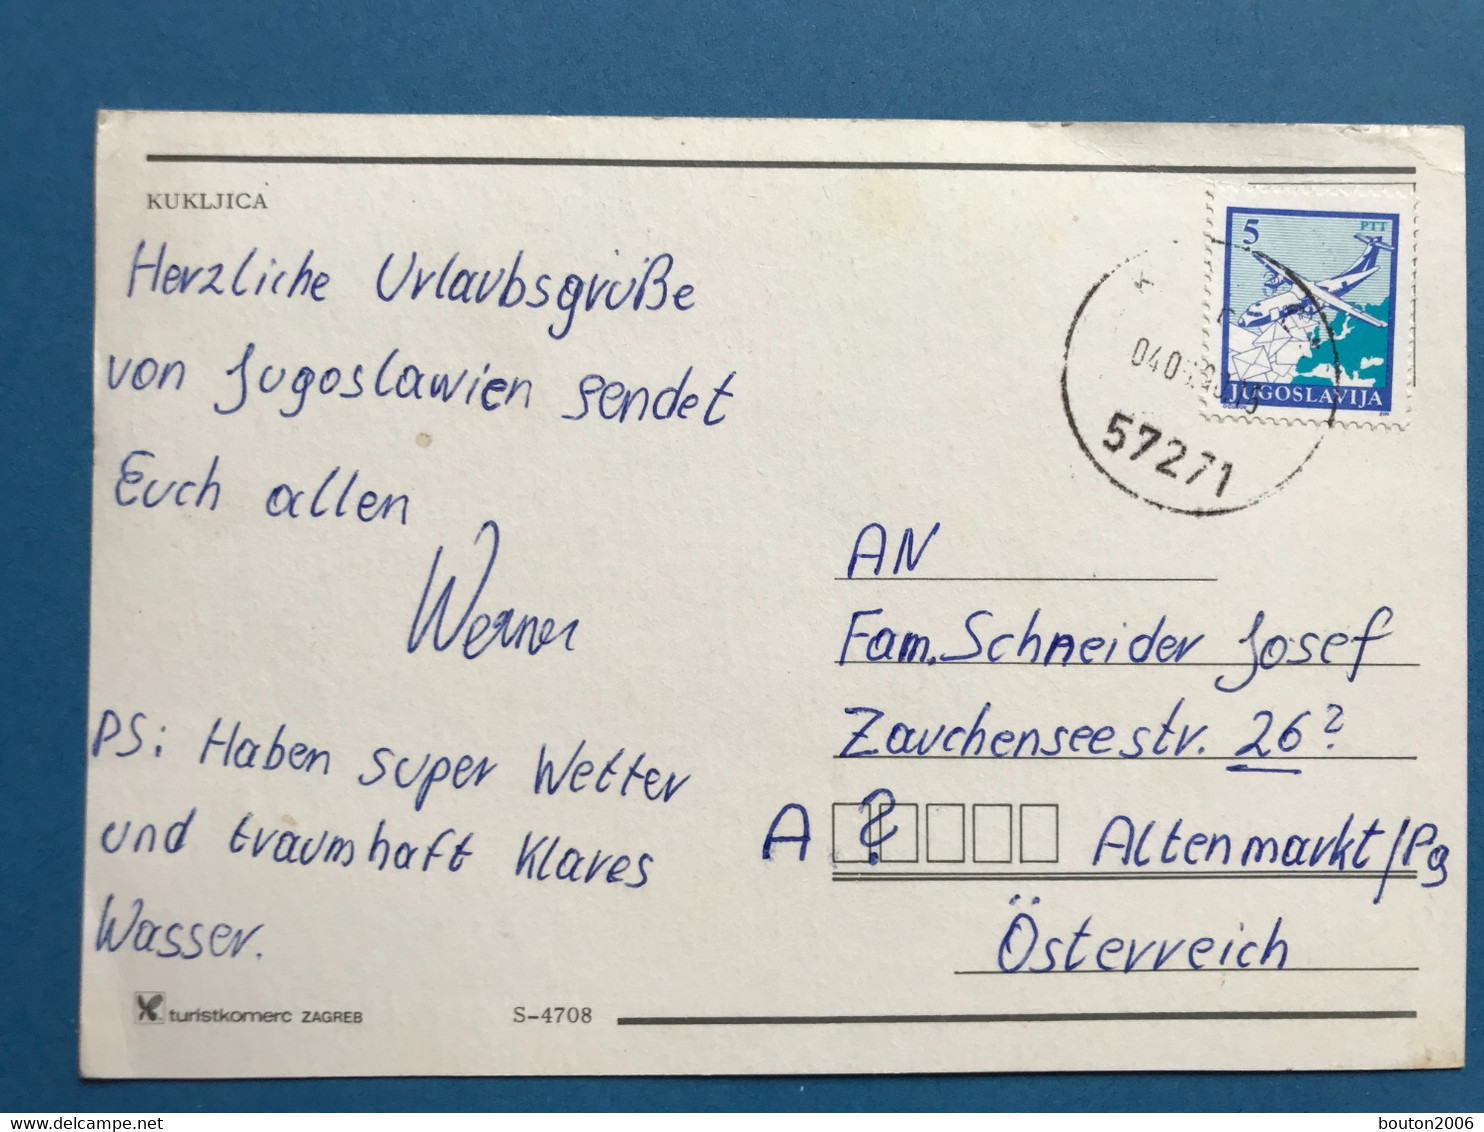 KUKLJICA
Herzliche Urlaubsgrüße
von Jugoslawien sendet
Euch allen
Werner
PS: Haben super Wetter
und traumhaft klares
Wasser.
turistkomerc ZAGREB
S-4708
5
PTT
JUGOSLAVIJA
57271
AN
Fam. Schneider Josef
Zauchenseestr. 26?
A ? Altenmarkt/Pg
Österreich
www.delcampe.net
bouton2006